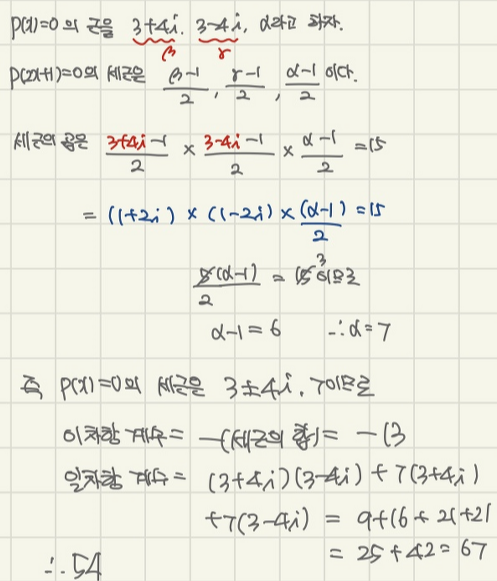 P(x)=0 의 근을 3+4i, 3-4i, α라고 하자.
β γ
P(2x+1)=0의 세근은 (β-1)/2, (γ-1)/2, (α-1)/2 이다.
세근의 곱은 (3+4i-1)/2 × (3-4i-1)/2 × (α-1)/2 = 15
= (1+2i) × (1-2i) × (α-1)/2 = 15
5(α-1)/2 = 15 3 이므로
α-1=6 ∴ α=7
즉 P(x)=0의 세근은 3±4i, 7이므로
이차항 계수 = -(세근의 합) = -13
일차항 계수 = (3+4i)(3-4i) + 7(3+4i)
+7(3-4i) = 9+16+21+21
= 25+42=67
∴ 54